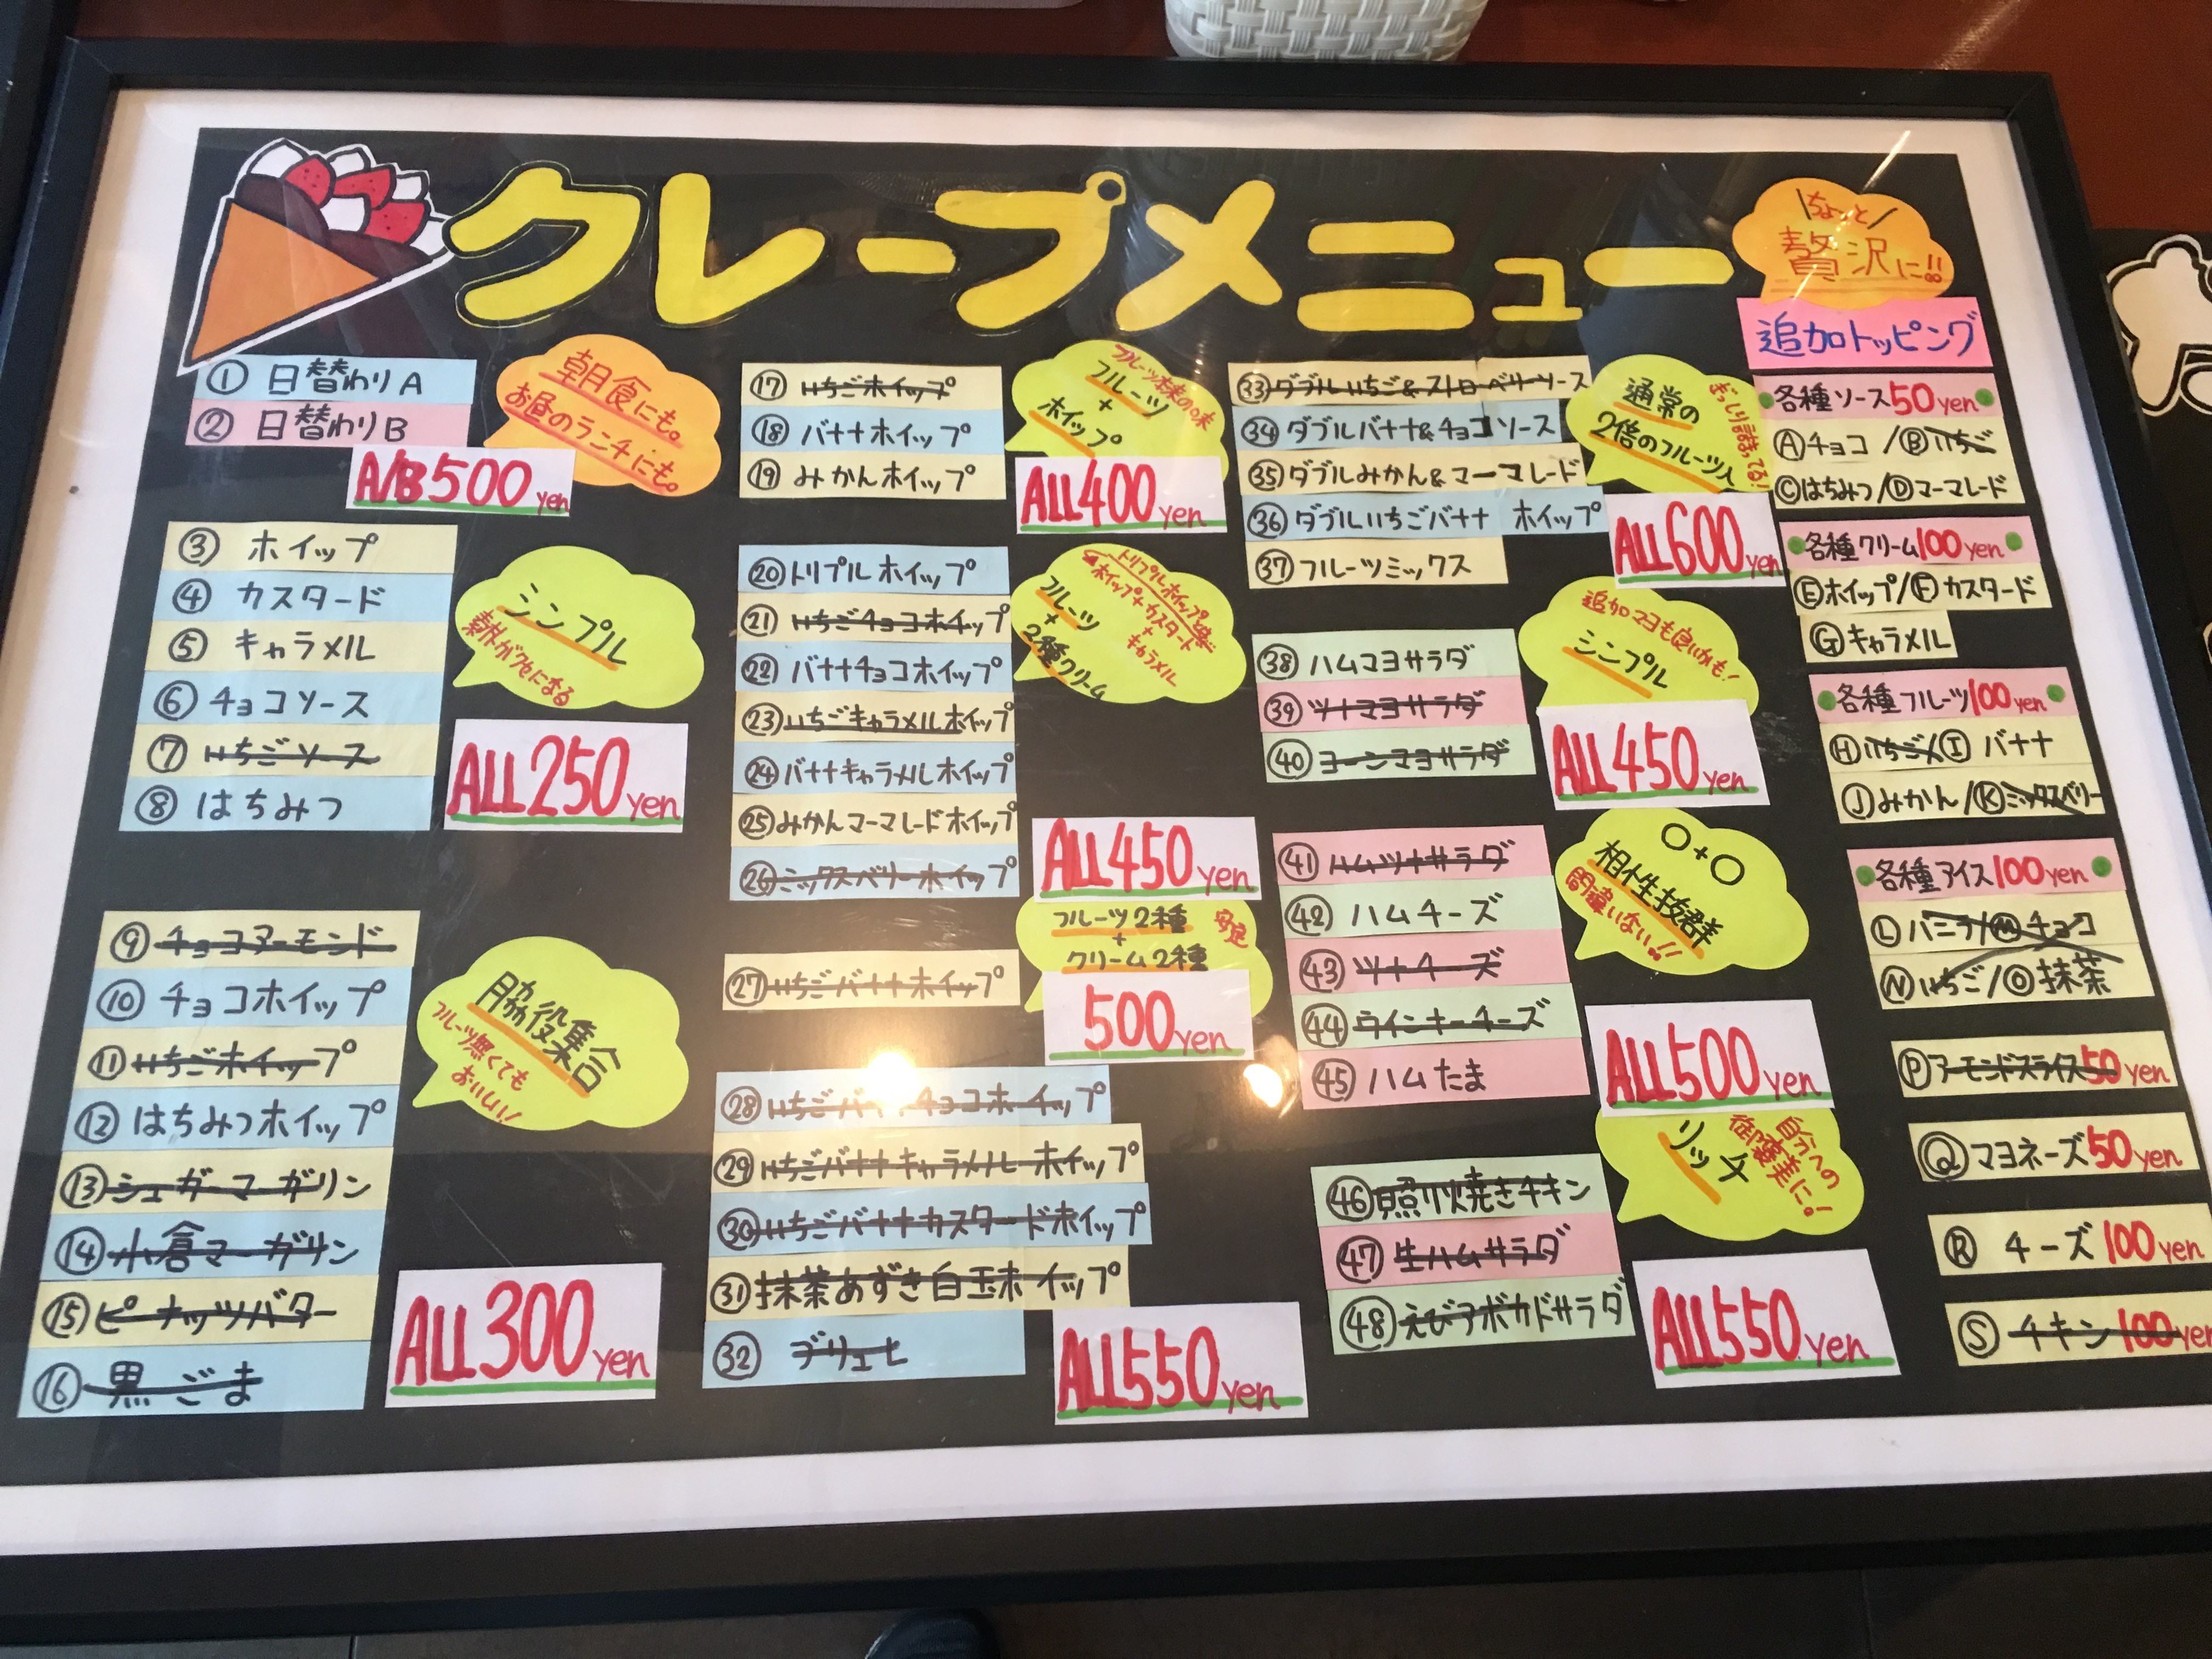 クレープメニュー
① 日替わりA
② 日替わりB
朝食にも。
お昼のランチにも。
A/B500yen
③ ホイップ
④ カスタード
⑤ キャラメル
⑥ チョコソース
⑦ いちごソース
⑧ はちみつ
シンプル
素材がクセになる
ALL250yen
⑨ チョコアーモンド
⑩ チョコホイップ
⑪ いちごホイップ
⑫ はちみつホイップ
⑬ シュガーマーガリン
⑭ 小倉マーガリン
⑮ ピーナッツバター
⑯ 黒ごま
脇役集合
フルーツ無くても
おいしい!
ALL300yen
⑰ いちごホイップ
⑱ バナナホイップ
⑲ みかんホイップ
フルーツ本来の味
フルーツ
+
ホイップ
ALL400yen
⑳ トリプルホイップ
㉑ いちごチョコホイップ
㉒ バナナチョコホイップ
㉓ いちごキャラメルホイップ
㉔ バナナキャラメルホイップ
㉕ みかんマーマレードホイップ
㉖ ミックスベリーホイップ
フルーツ
+
2種クリーム
ホイップ+カスタード
+
キャラメル
ALL450yen
㉗ いちごバナナホイップ
フルーツ2種
+
クリーム2種
500yen
㉘ いちごバナナチョコホイップ
㉙ いちごバナナキャラメルホイップ
㉚ いちごバナナカスタードホイップ
㉛ 抹茶あずき白玉ホイップ
㉜ ブリュレ
ALL550yen
㉝ ダブルいちご&ストロベリーソース
㉞ ダブルバナナ&チョコソース
㉟ ダブルみかん&マーマレード
㊱ ダブルいちごバナナ ホイップ
㊲ フルーツミックス
通常の
2倍のフルーツ入
ぎっしり詰まってる!
ALL600yen
㊳ ハムマヨサラダ
㊴ ツナマヨサラダ
㊵ コーンマヨサラダ
追加マヨも良いかも!
シンプル
ALL450yen
㊶ ハムツナサラダ
㊷ ハムチーズ
㊸ ツナチーズ
㊹ ウインナーチーズ
㊺ ハムたま
○+○
相性抜群
間違いない!!
ALL500yen
㊻ 照り焼きチキン
㊼ 生ハムサラダ
㊽ えびアボカドサラダ
リッチ
自分への
御褒美に!
ALL550yen
ちょっと
贅沢に!!
追加トッピング
各種ソース50yen
Ⓐチョコ/Ⓑいちご
Ⓒはちみつ/Ⓓマーマレード
各種クリーム100yen
Ⓔホイップ/Ⓕカスタード
Ⓖキャラメル
各種フルーツ100yen
Ⓗいちご/Ⓘバナナ
Ⓙみかん/Ⓚミックスベリー
各種アイス100yen
Ⓛバニラ/Ⓜチョコ
Ⓝいちご/Ⓞ抹茶
Ⓟアーモンドスライス50yen
Ⓠマヨネーズ50yen
Ⓡチーズ100yen
Ⓢチキン100yen